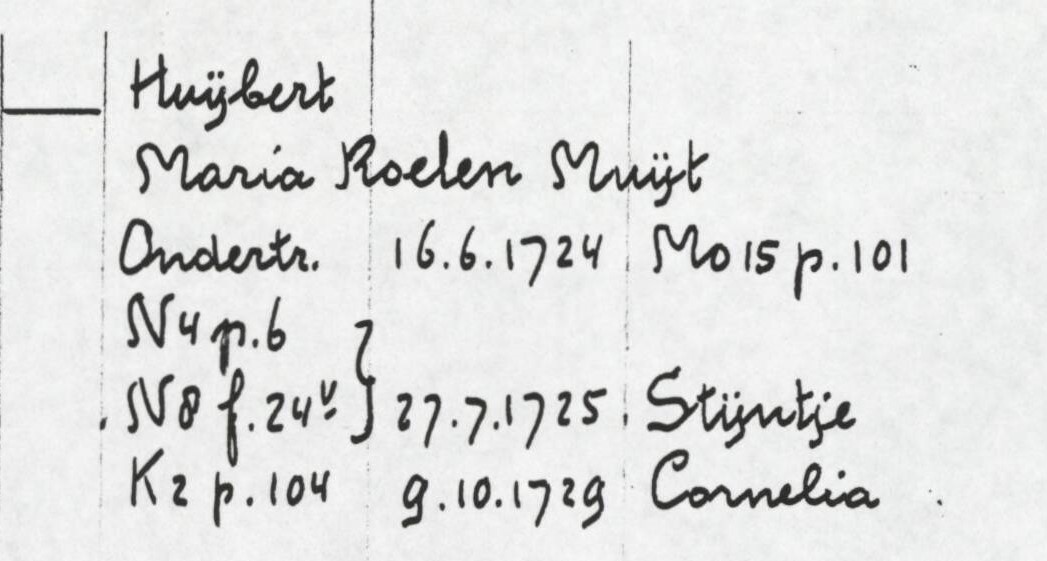 Huijbert
Maria Roelen Muijt
Ondertr. 16.6.1724 Mo 15 p. 101
N4 p. 6
N8 f. 24v. 27.7.1725. Stijntje
K2 p. 104 9.10.1729 Cornelia